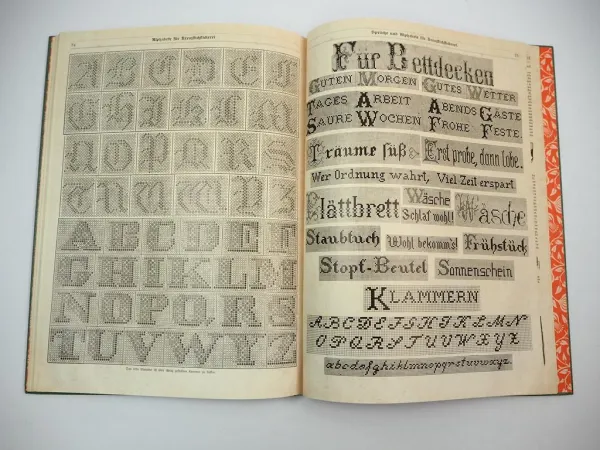 Alphabete für Kreuzstichstickerei
A B C D E F
G H I K L
N O P Q R S
T U V W Y Z
A B C D E F
G H I K L M
N O P Q R S
T U V W Y Z
Sprüche und Alphabete für Kreuzstichstickerei
Für Bettdecken
GUTEN MORGEN GUTES WETTER
TAGES ARBEIT ABENDS GÄSTE
SAURE WOCHEN FROHE FESTE.
Träume süß Erst probe, dann lobe.
Wer Ordnung wahrt, Viel Zeit erspart
Plättbrett Wäsche Schlaf wohl! Wäsche
Staubtuch Wohl bekomm's! Frühstück
Stopf-Beutel Sonnenschein
KLAMMERN
ABCDEFGHIKLMN
OPQRSTUVWXYZ
abcdefghiklmnopqrstuvwxyz